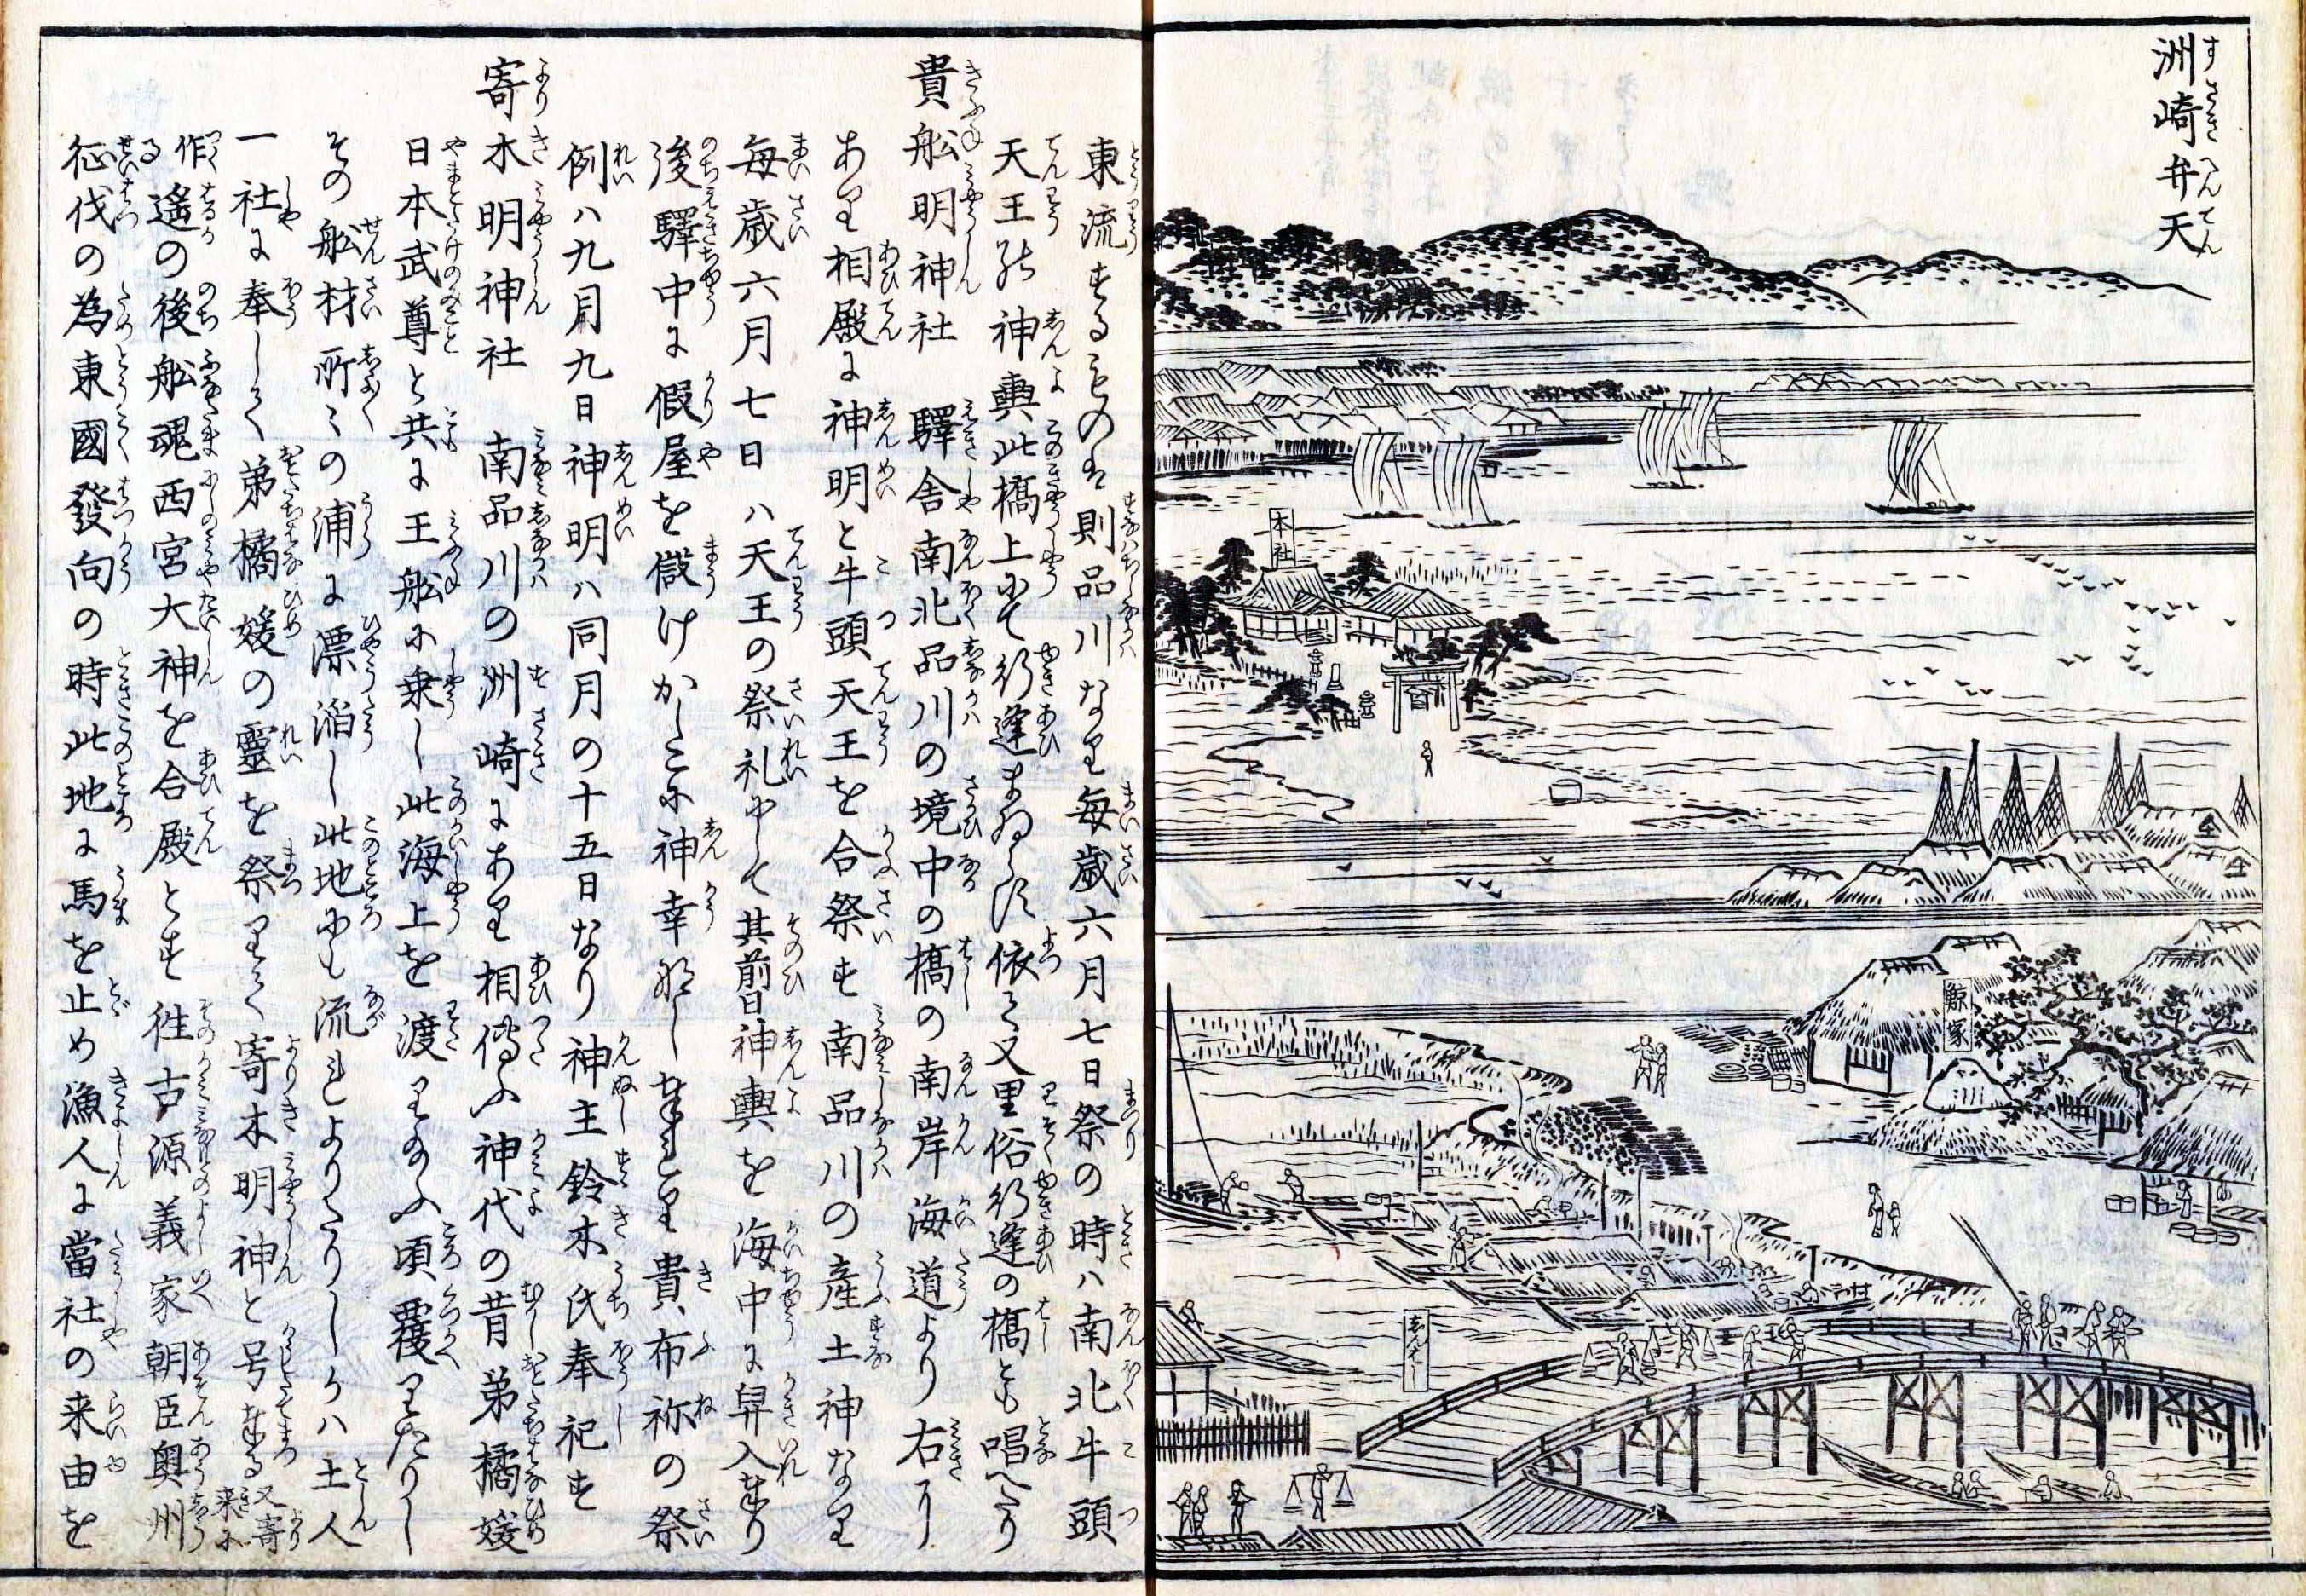 洲崎弁天
本社
鯨塚
東流するものは則品川なり毎歳六月七日祭の時ハ南北牛頭
天王の神輿此橋上にて行逢まゐらす依て又里俗行逢の橋とも唱へたり
貴舩明神社 驛舎南北品川の境中の橋の南岸海道より右に
あり相殿に神明と牛頭天王を合祭す南品川の産土神なり
毎歳六月七日ハ天王の祭礼にして其前日神輿を海中に舁入奉り
後驛中に假屋を儲けかしこに神幸なし奉れり貴布祢の祭
例ハ九月九日神明ハ同月の十五日なり神主鈴木氏奉祀す
寄木明神社 南品川の洲崎にあり相傳ふ神代の昔弟橘媛
日本武尊と共に王舩に乗し此海上を渡り給ふ頃覆りたりし
その舩材所々の浦に漂泊し此地にも流れよりたりしかハ土人
一社に奉して弟橘媛の靈を祭りて寄木明神と号奉る又寄来に
作る遙の後舩魂西宮大神を合殿とす往古源義家朝臣奥州
征伐の為東國發向の時此地に馬を止め漁人に當社の来由を